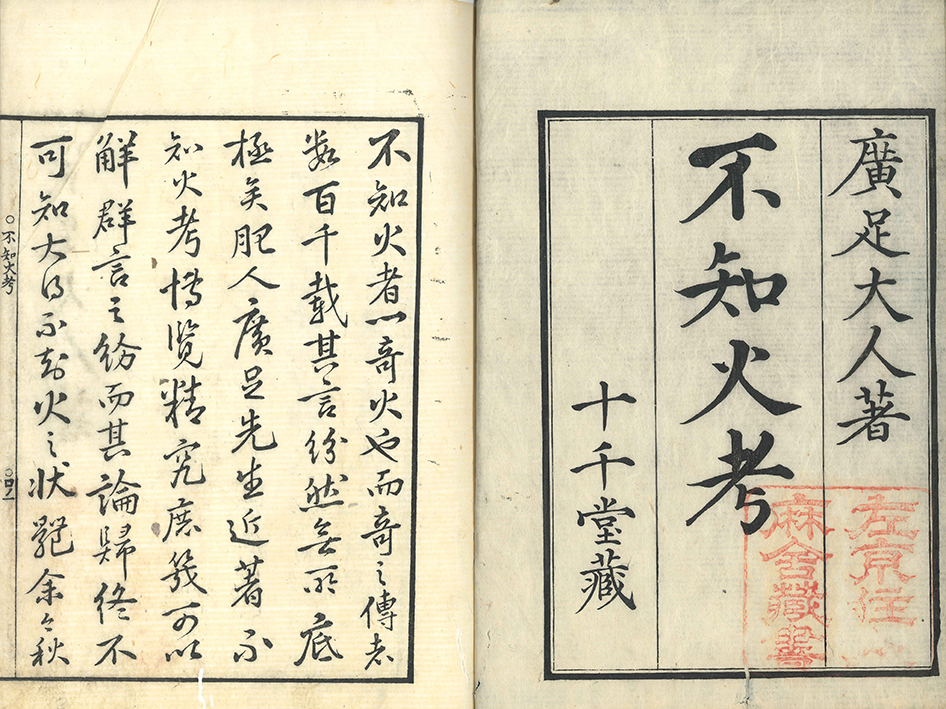 廣足大人著
不知火考
十千堂藏
左京住
麻舎藏書
不知火者一奇火也而奇之傳者
数百千載其言紛然無所底
極矣肥人廣足先生近著不
知火考博覧精究庶幾可以
解群言之紛而其論歸終不
可知大得不知火之状余今秋
○不知火考